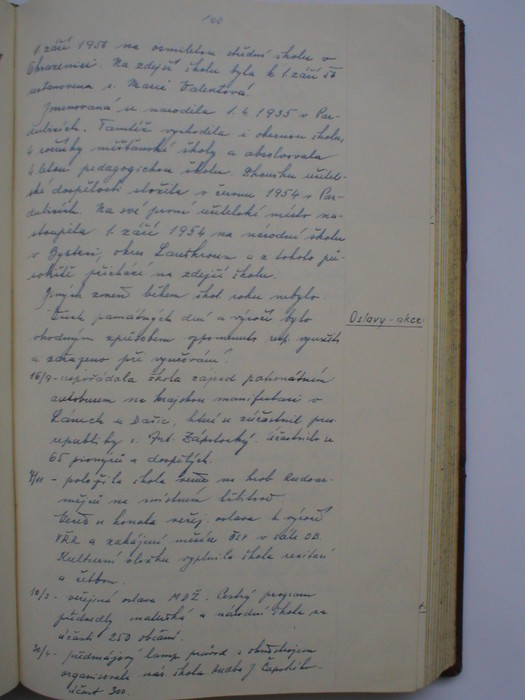 100
1 září 1956 na osmiletou střední školu v
Ohrazenici. Na zdejší školu byla k 1 září 56
ustanovena s. Marie Valentová.
Jmenovaná se narodila 1.4.1935 v Par-
dubicích. Tamtéž vychodila i obecnou školu,
4 ročníky měšťanské školy a absolvovala
4 letou pedagogickou školu. Zkoušku učitel-
ské dospělosti složila v červnu 1954 v Par-
dubicích. Na své první učitelské místo na-
stoupila 1. září 1954 na národní školu
v Bystřeci, okres Lanškroun a z tohoto pů-
sobiště přichází na zdejší školu.
Jiných změn během škol. roku nebylo.
Všech památných dní a výročí bylo
Oslavy - akce
vhodným způsobem vzpomenuto resp. využito
a zařazeno při vyučování.
16/9 - uspořádala škola zájezd patronátním
autobusem na krajskou manifestaci v
a Dašic, které se zúčastnil pres.
republiky s. Ant. Zápotocký. Účastnilo se
65 pionýrů a dospělých.
- položila škola na hrob Rudoar-
mějců na místním hřbitově
Večer se konala veřej. oslava k výročí
VŘR a zahájení měsíce ČSP v sále OB.
Kulturní vložku vyplnila škola recitací
a četbou.
10/3 - veřejná oslava MDŽ. Pestrý program
předvedly mateřská a národní škola za
účasti 250 občanů.
30/4 - předmájový lamp. průvod s
organisovala náš škola hudba J. Čapek
účast 300.